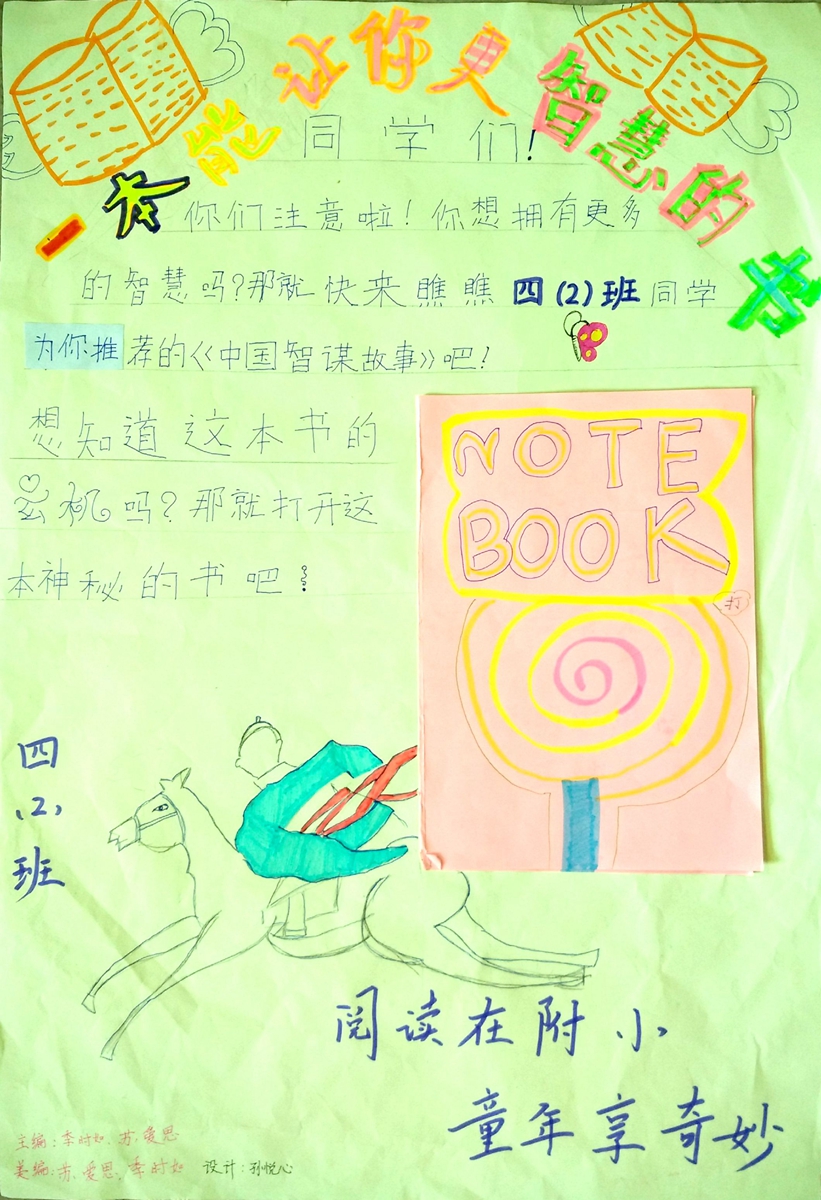 一本能让你更智慧的书
同学们!
你们注意啦!你想拥有更多
的智慧吗?那就快来瞧瞧四(2)班同学
为你推荐的《中国智谋故事》吧!
想知道这本书的
玄机吗?那就打开这
本神秘的书吧!
NOTE
BOOK
打
四
(2)
班
阅读在附小
童年享奇妙
主编:李时如、苏爱思
美编:苏爱思、李时如 设计:孙悦心